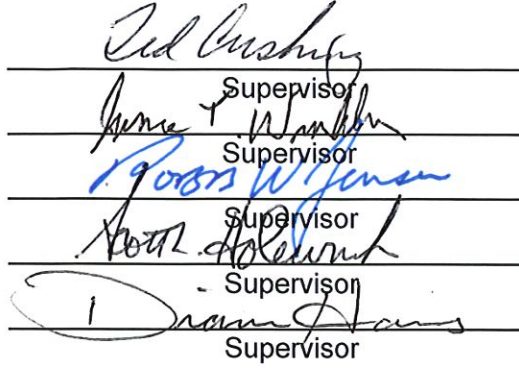 Ted Cushing
Supervisor
T. Winkler
Supervisor
W Jensen
Supervisor
Scott R. Holewinski
Supervisor
Supervisor